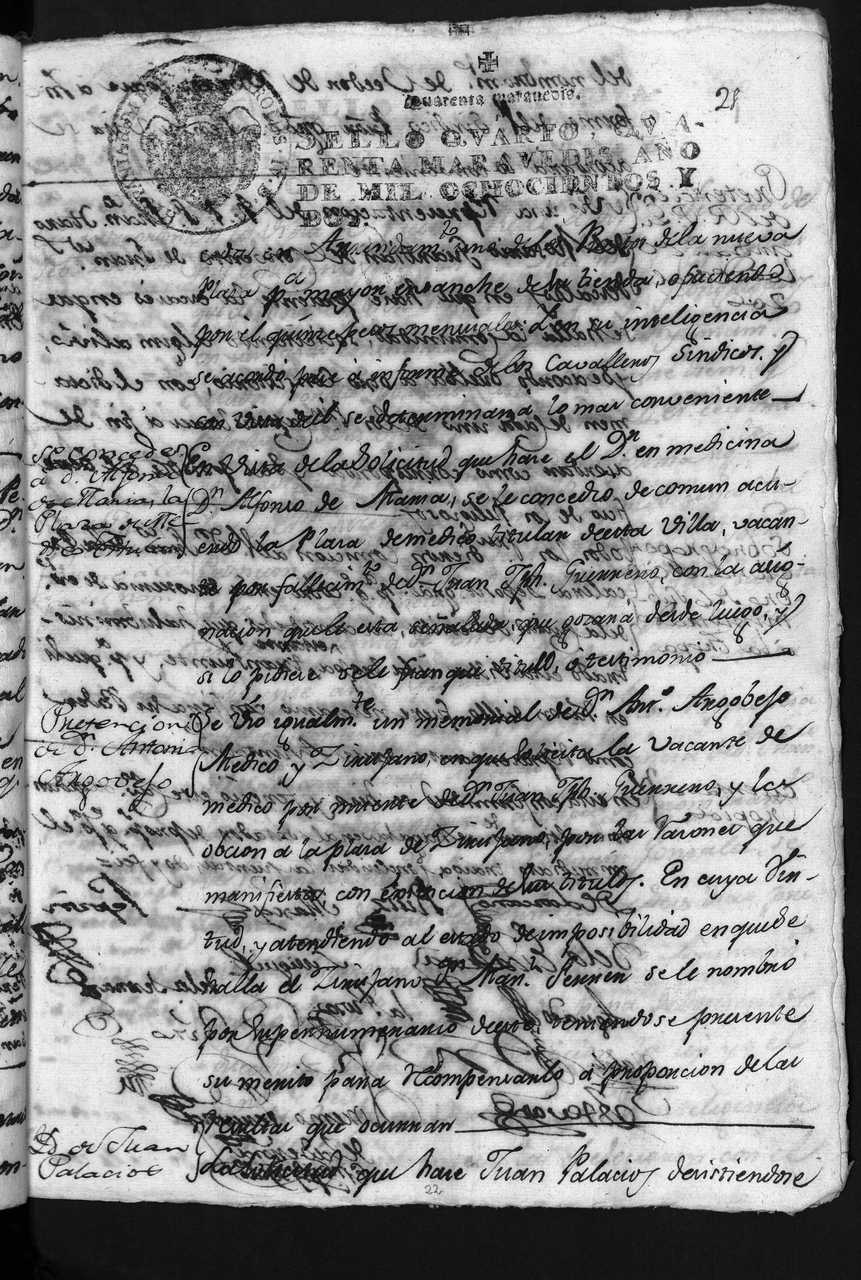 Quarenta maravedis.
21
SELLO QVARTO, QVA-
RENTA MARAVEDIS, AÑO
DE MIL OCHOCIENTOS Y
DOS.
en Arrendam.to uno de los de la nueva
Plaza p.a mayor ensanche de su tienda, ofreciendo
por el quince pesos mensuales: Y en su inteligencia
se acordó pase à informe de los Cavalleros Sindicos, y
con vista de el se determinará lo mas conveniente
Se concede
a D.n Alfonso
de Maria, la
Plaza de Me-
dico titular
En vista de la Solicitud que hace el D.r en medicina
D.n Alfonso de Maria, se le concedio, de comun acu-
erdo la Plaza de medico titular de esta Villa, vacan-
te por fallecim.to de D.n Juan Jph. Guerrero, con la asig-
nacion que le esta señalada, que gozará desde luego, y
si lo pidiere se le franqueé titulo, ó testimonio
Pretencion
de D.n Antonio
Argobejo
Se vio igualm.te un memorial de D.n Ant.o Argobejo
Medico y Zirujano, en que solicita la vacante de
medico por muerte de D.n Juan Jph. Guerrero, y la
obcion a la plaza de Zirujano, por las razones que
manifiesta, con exivicion de sus titulos. En cuya Vir-
tud, y atendiendo al estado de imposibilidad en que se
halla el Zirujano D.n Man.l Ferrer se le nombró
por Supernumerario de este, teniendose presente
su merito para recompensarlo á proporcion de las
que ocurran
D. de Juan
Palacios
La solicitud que hace Juan Palacios desistiendose
22